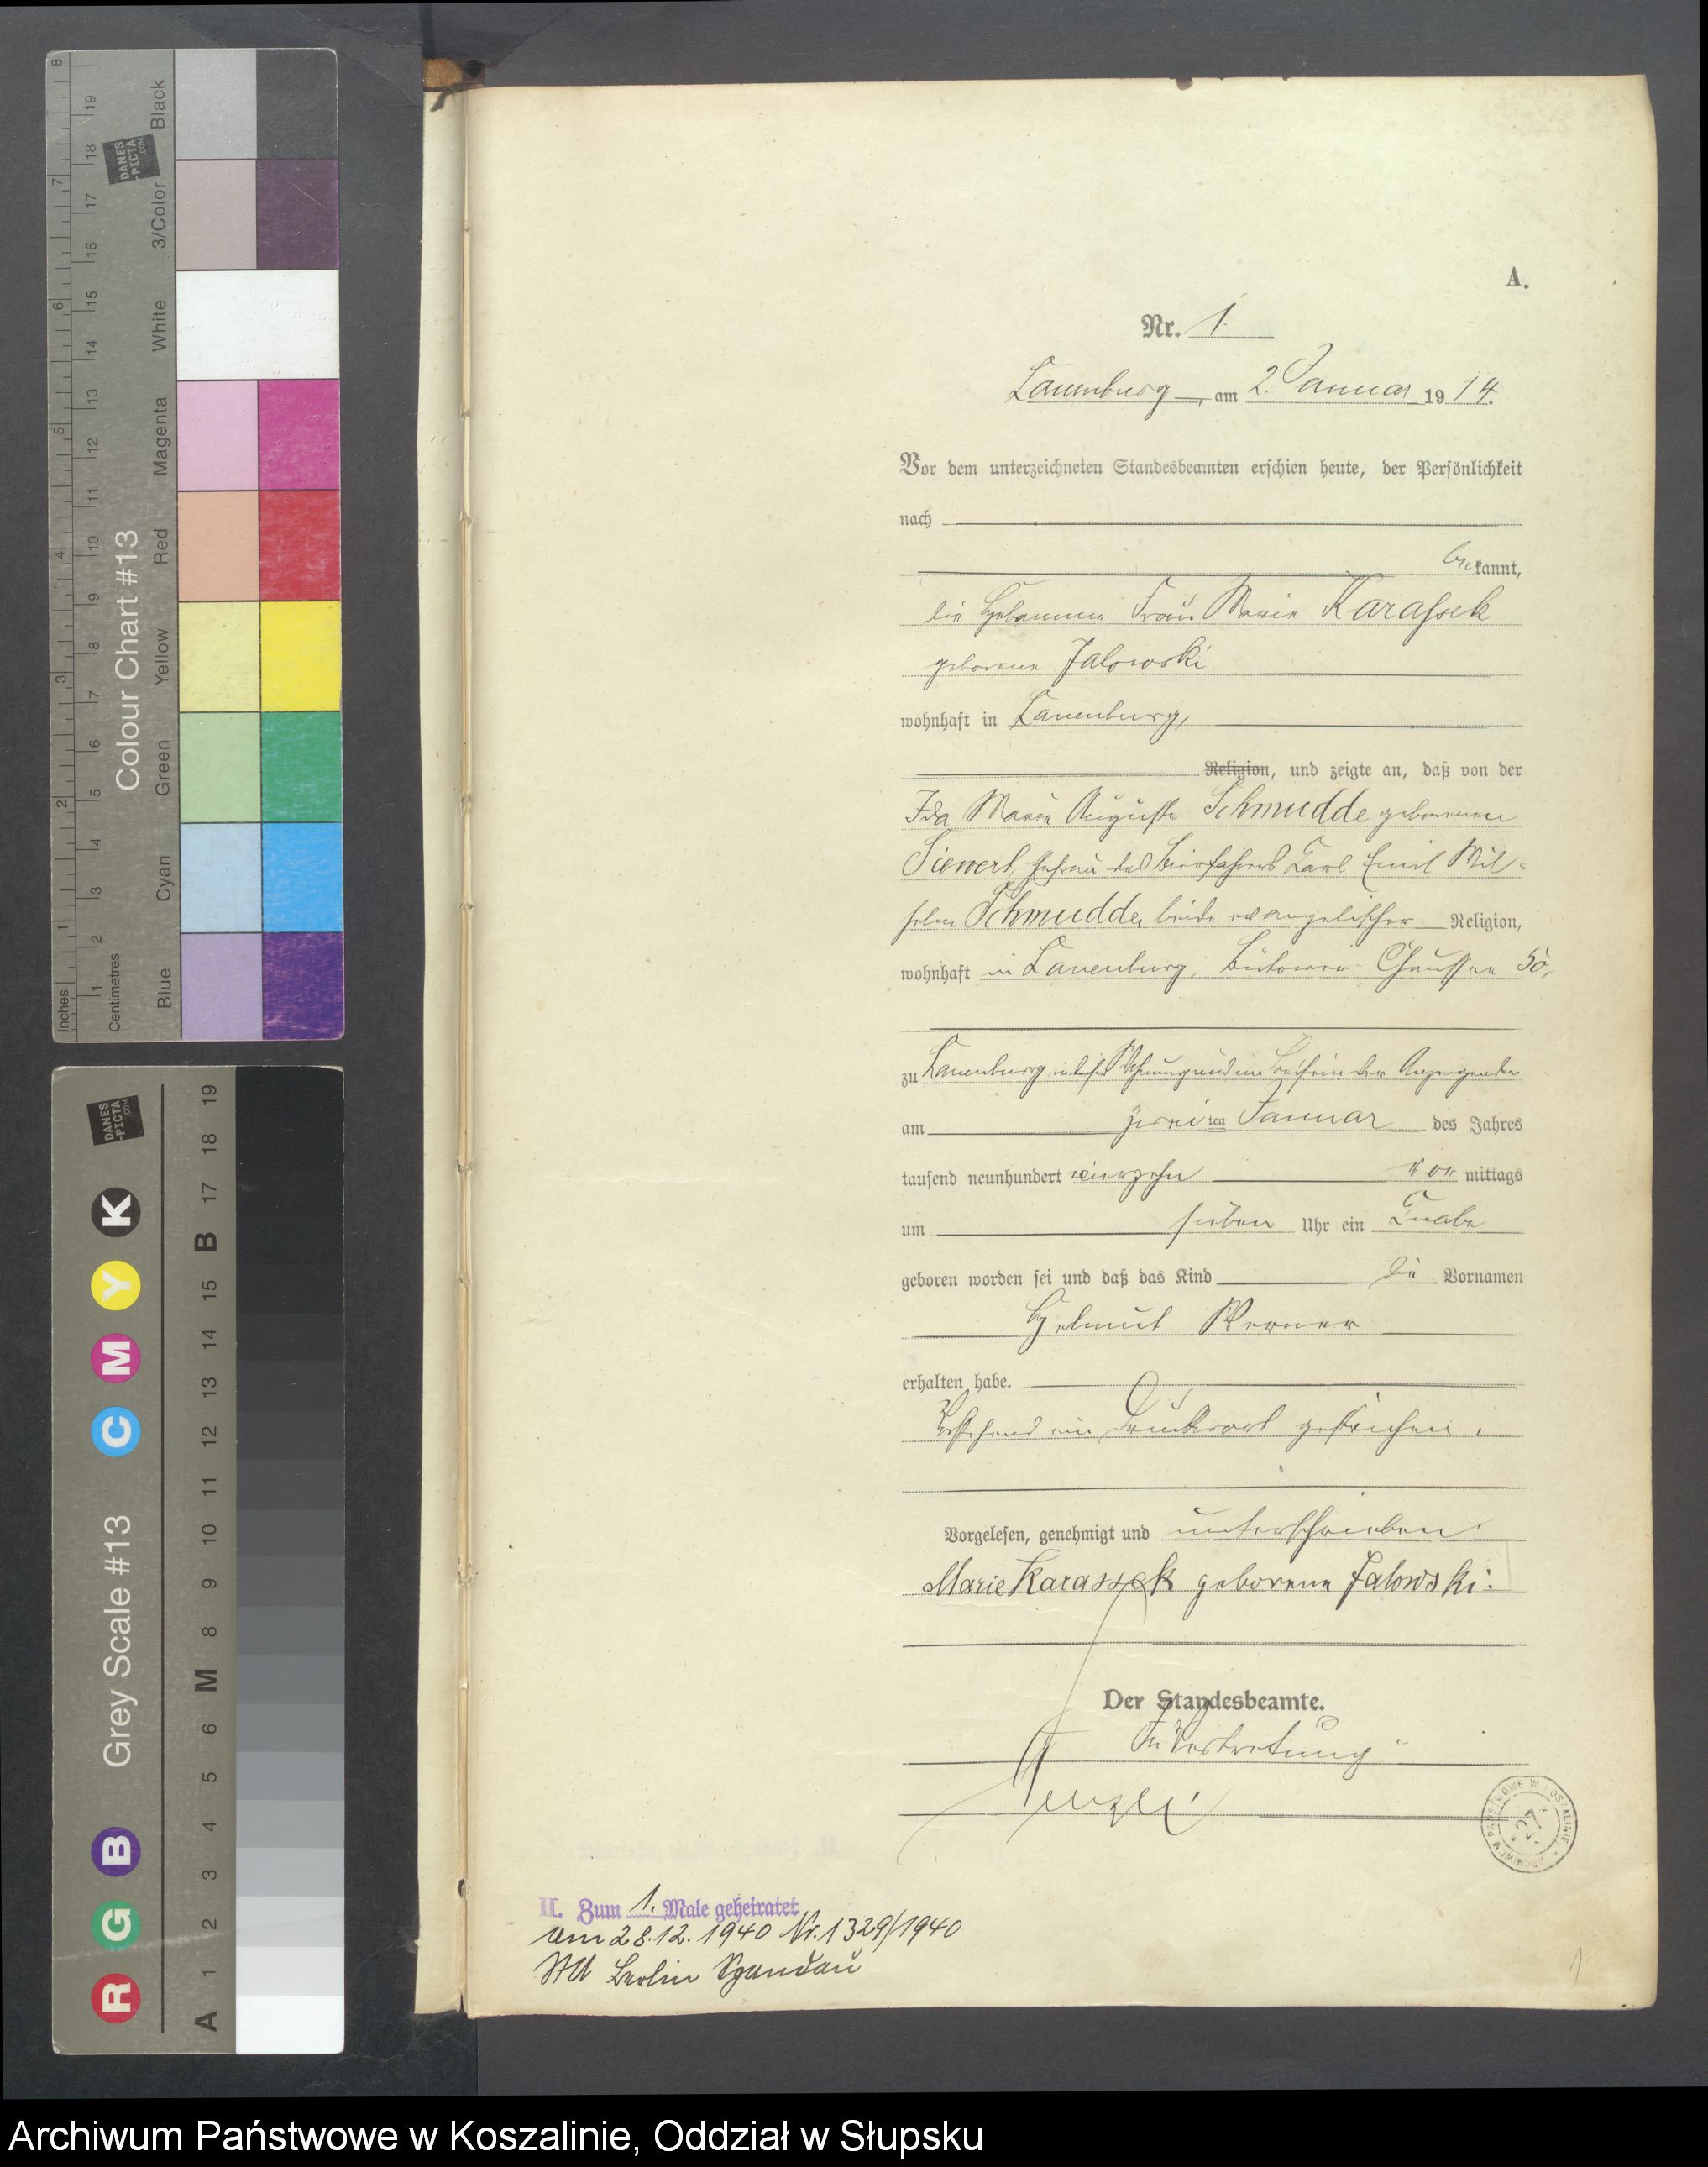 A.
Nr. 1.
Lauenburg, am 2. Januar 1914.
Vor dem unterzeichneten Standesbeamten erschien heute, der Persönlichkeit
nach
bekannt,
die Hebamme Frau Marie Karassek
geborene Jalowski
wohnhaft in Lauenburg,
Religion, und zeigte an, daß von der
Ida Marie Auguste Schmudde geborenen
Siewert, Ehefrau des Bierfahrers Karl Emil Wil-
helm Schmudde, beide evangelischer Religion,
wohnhaft in Lauenburg, Bütower Chaussee 50,
zu Lauenburg in dieser Wohnung und im Beisein der Anzeigenden
am zweiten Januar des Jahres
tausend neunhundert vierzehn vormittags
um sieben Uhr ein Knabe
geboren worden sei und daß das Kind die Vornamen
Helmut Werner
erhalten habe.
Vorstehend ein Druckwort gestrichen.
Vorgelesen, genehmigt und unterschrieben.
Marie Karassek geborene Jalowski.
Der Standesbeamte.
In Vertretung
II. Zum 1. Male geheiratet
am 28.12.1940 Nr. 1329/1940
StA Berlin Spandau
ARCHIWUM PAŃSTWOWE W KOSZALINIE
27
1
Colour Chart #13
Inches
Centimetres
Blue Cyan Green Yellow Red Magenta White 3/Color Black
DANES-PICTA.COM
Grey Scale #13
R G B C M Y K
A 1 2 3 4 5 6 M 8 9 10 11 12 13 14 15 B 17 18 19
DANES-PICTA.COM
Archiwum Państwowe w Koszalinie, Oddział w Słupsku